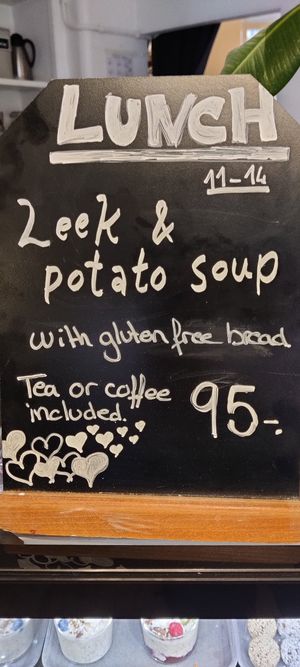 LUNCH
11-14
Leek &
potato soup
with gluten free bread
Tea or coffee
included.
95-.